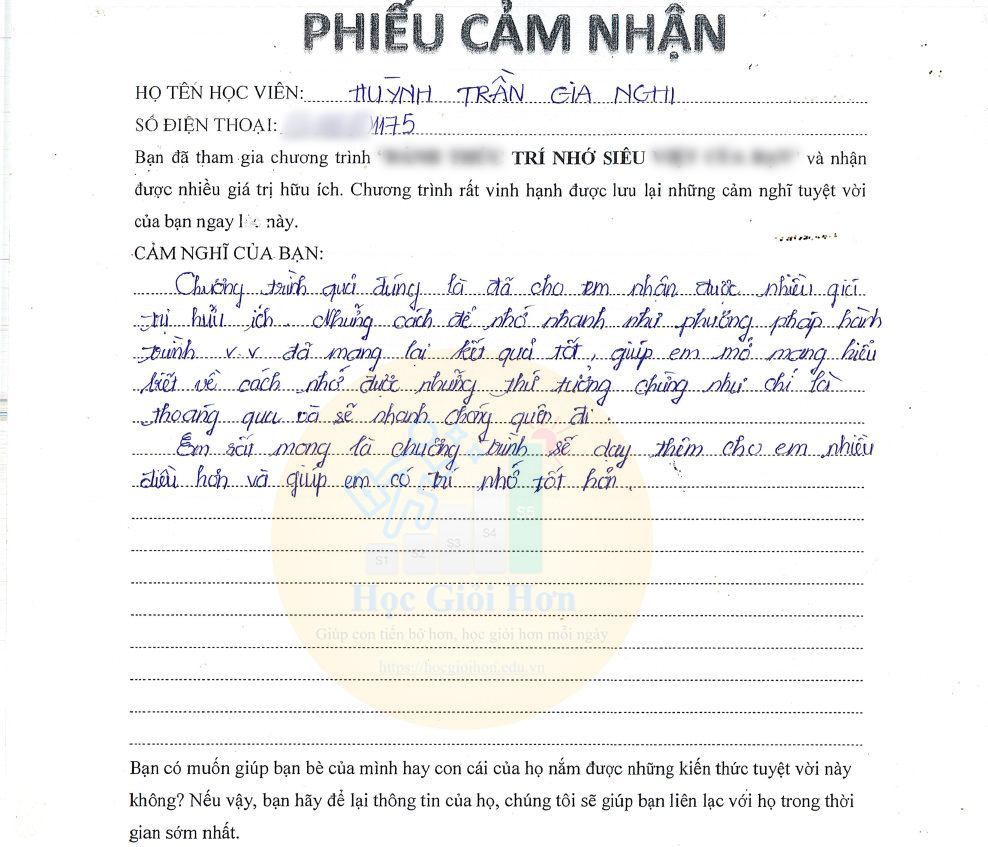 PHIẾU CẢM NHẬN
HỌ TÊN HỌC VIÊN: HUỲNH TRẦN GIA NGHI
SỐ ĐIỆN THOẠI: 1175
Bạn đã tham gia chương trình TRÍ NHỚ SIÊU và nhận
được nhiều giá trị hữu ích. Chương trình rất vinh hạnh được lưu lại những cảm nghĩ tuyệt vời
của bạn ngay này.
CẢM NGHĨ CỦA BẠN:
Chương trình quả đúng là đã cho em nhận được nhiều giá
trị hữu ích. Những cách để nhớ nhanh như phương pháp hành
trình v.v đã mang lại kết quả tốt, giúp em mở mang hiểu
biết về cách nhớ được những thứ tưởng chừng như chỉ là
thoáng qua và sẽ nhanh chóng quên đi.
Em rất mong là chương trình sẽ dạy thêm cho em nhiều
điều hơn và giúp em có trí nhớ tốt hơn.
S1 S2 S3 S4 S5
Học Giỏi Hơn
Giúp con tiến bộ hơn, học giỏi hơn mỗi ngày
https://hocgioihon.edu.vn
Bạn có muốn giúp bạn bè của mình hay con cái của họ nắm được những kiến thức tuyệt vời này
không? Nếu vậy, bạn hãy để lại thông tin của họ, chúng tôi sẽ giúp bạn liên lạc với họ trong thời
gian sớm nhất.